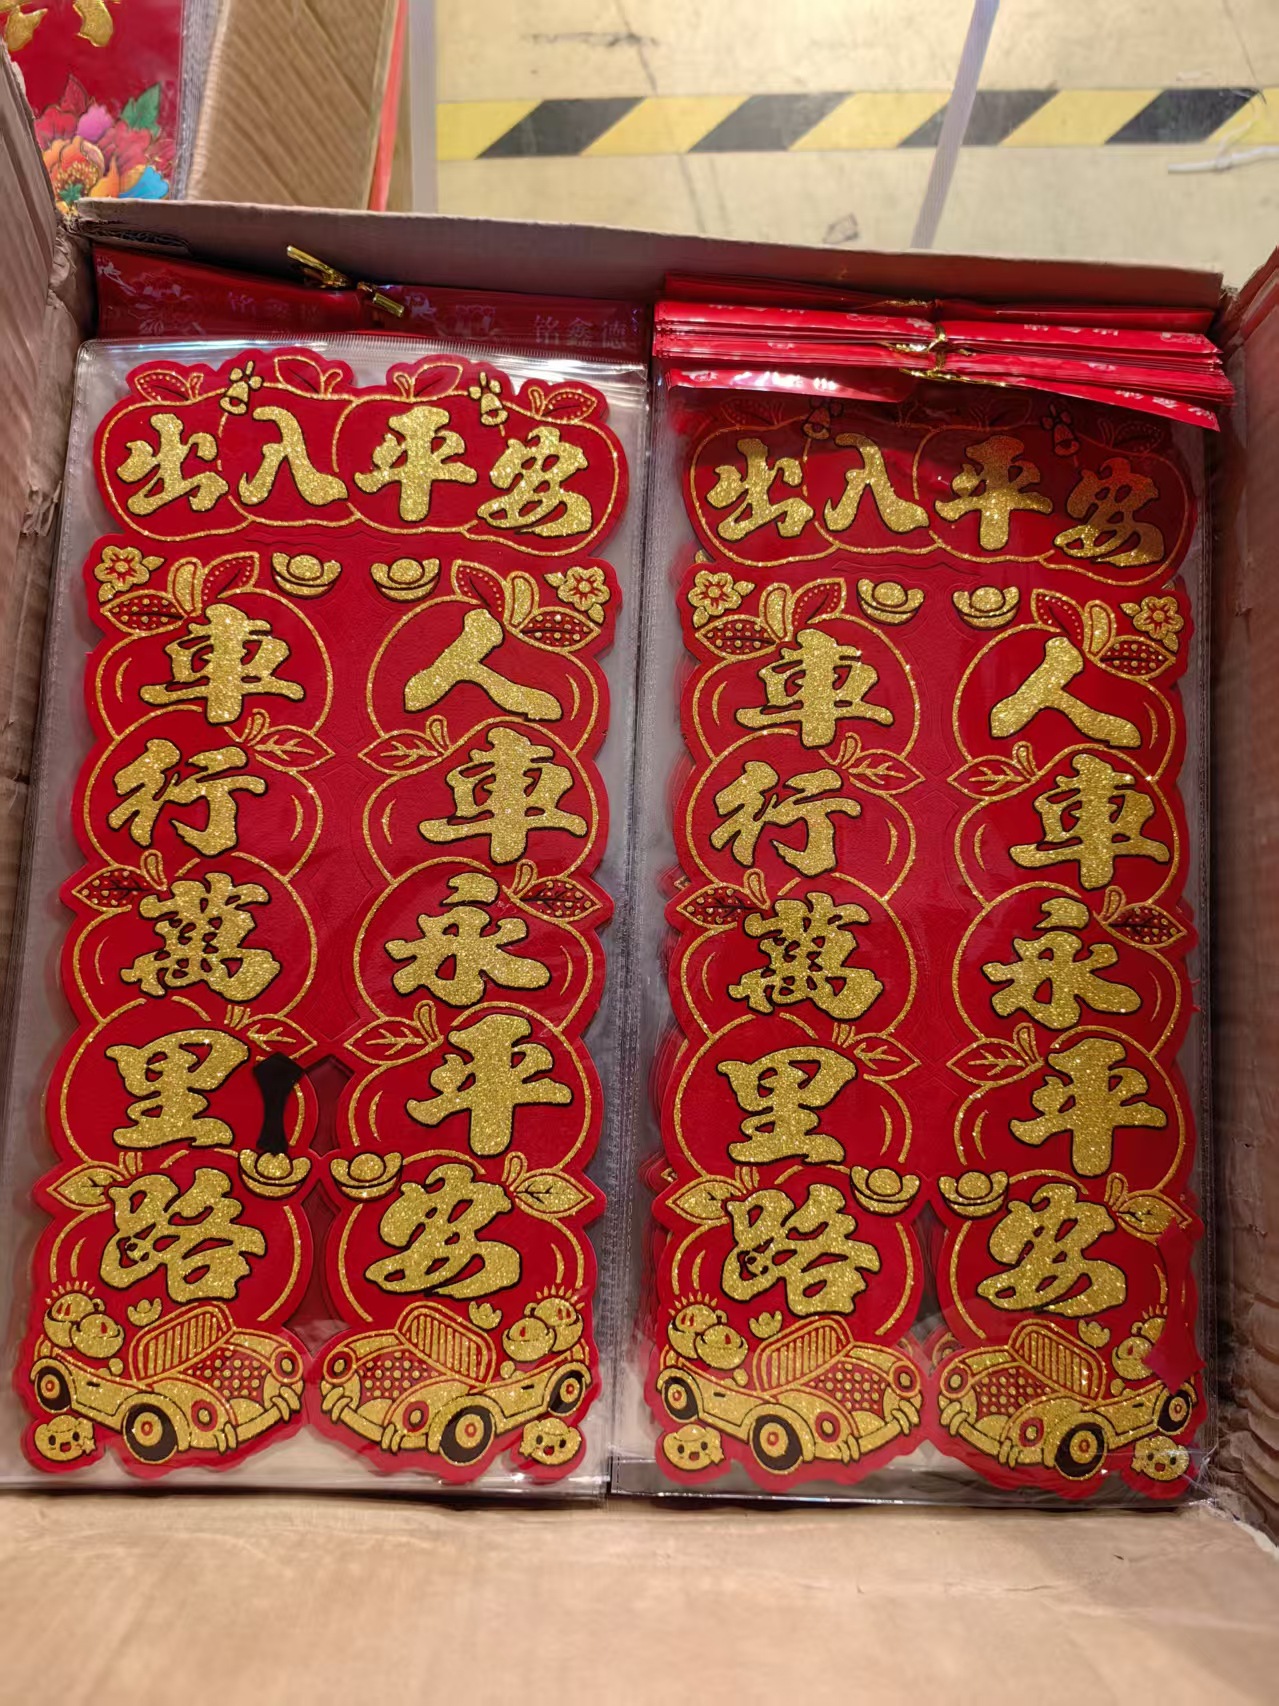 铭鑫德
出入平安
人車永平安
車行萬里路
出入平安
人車永平安
車行萬里路